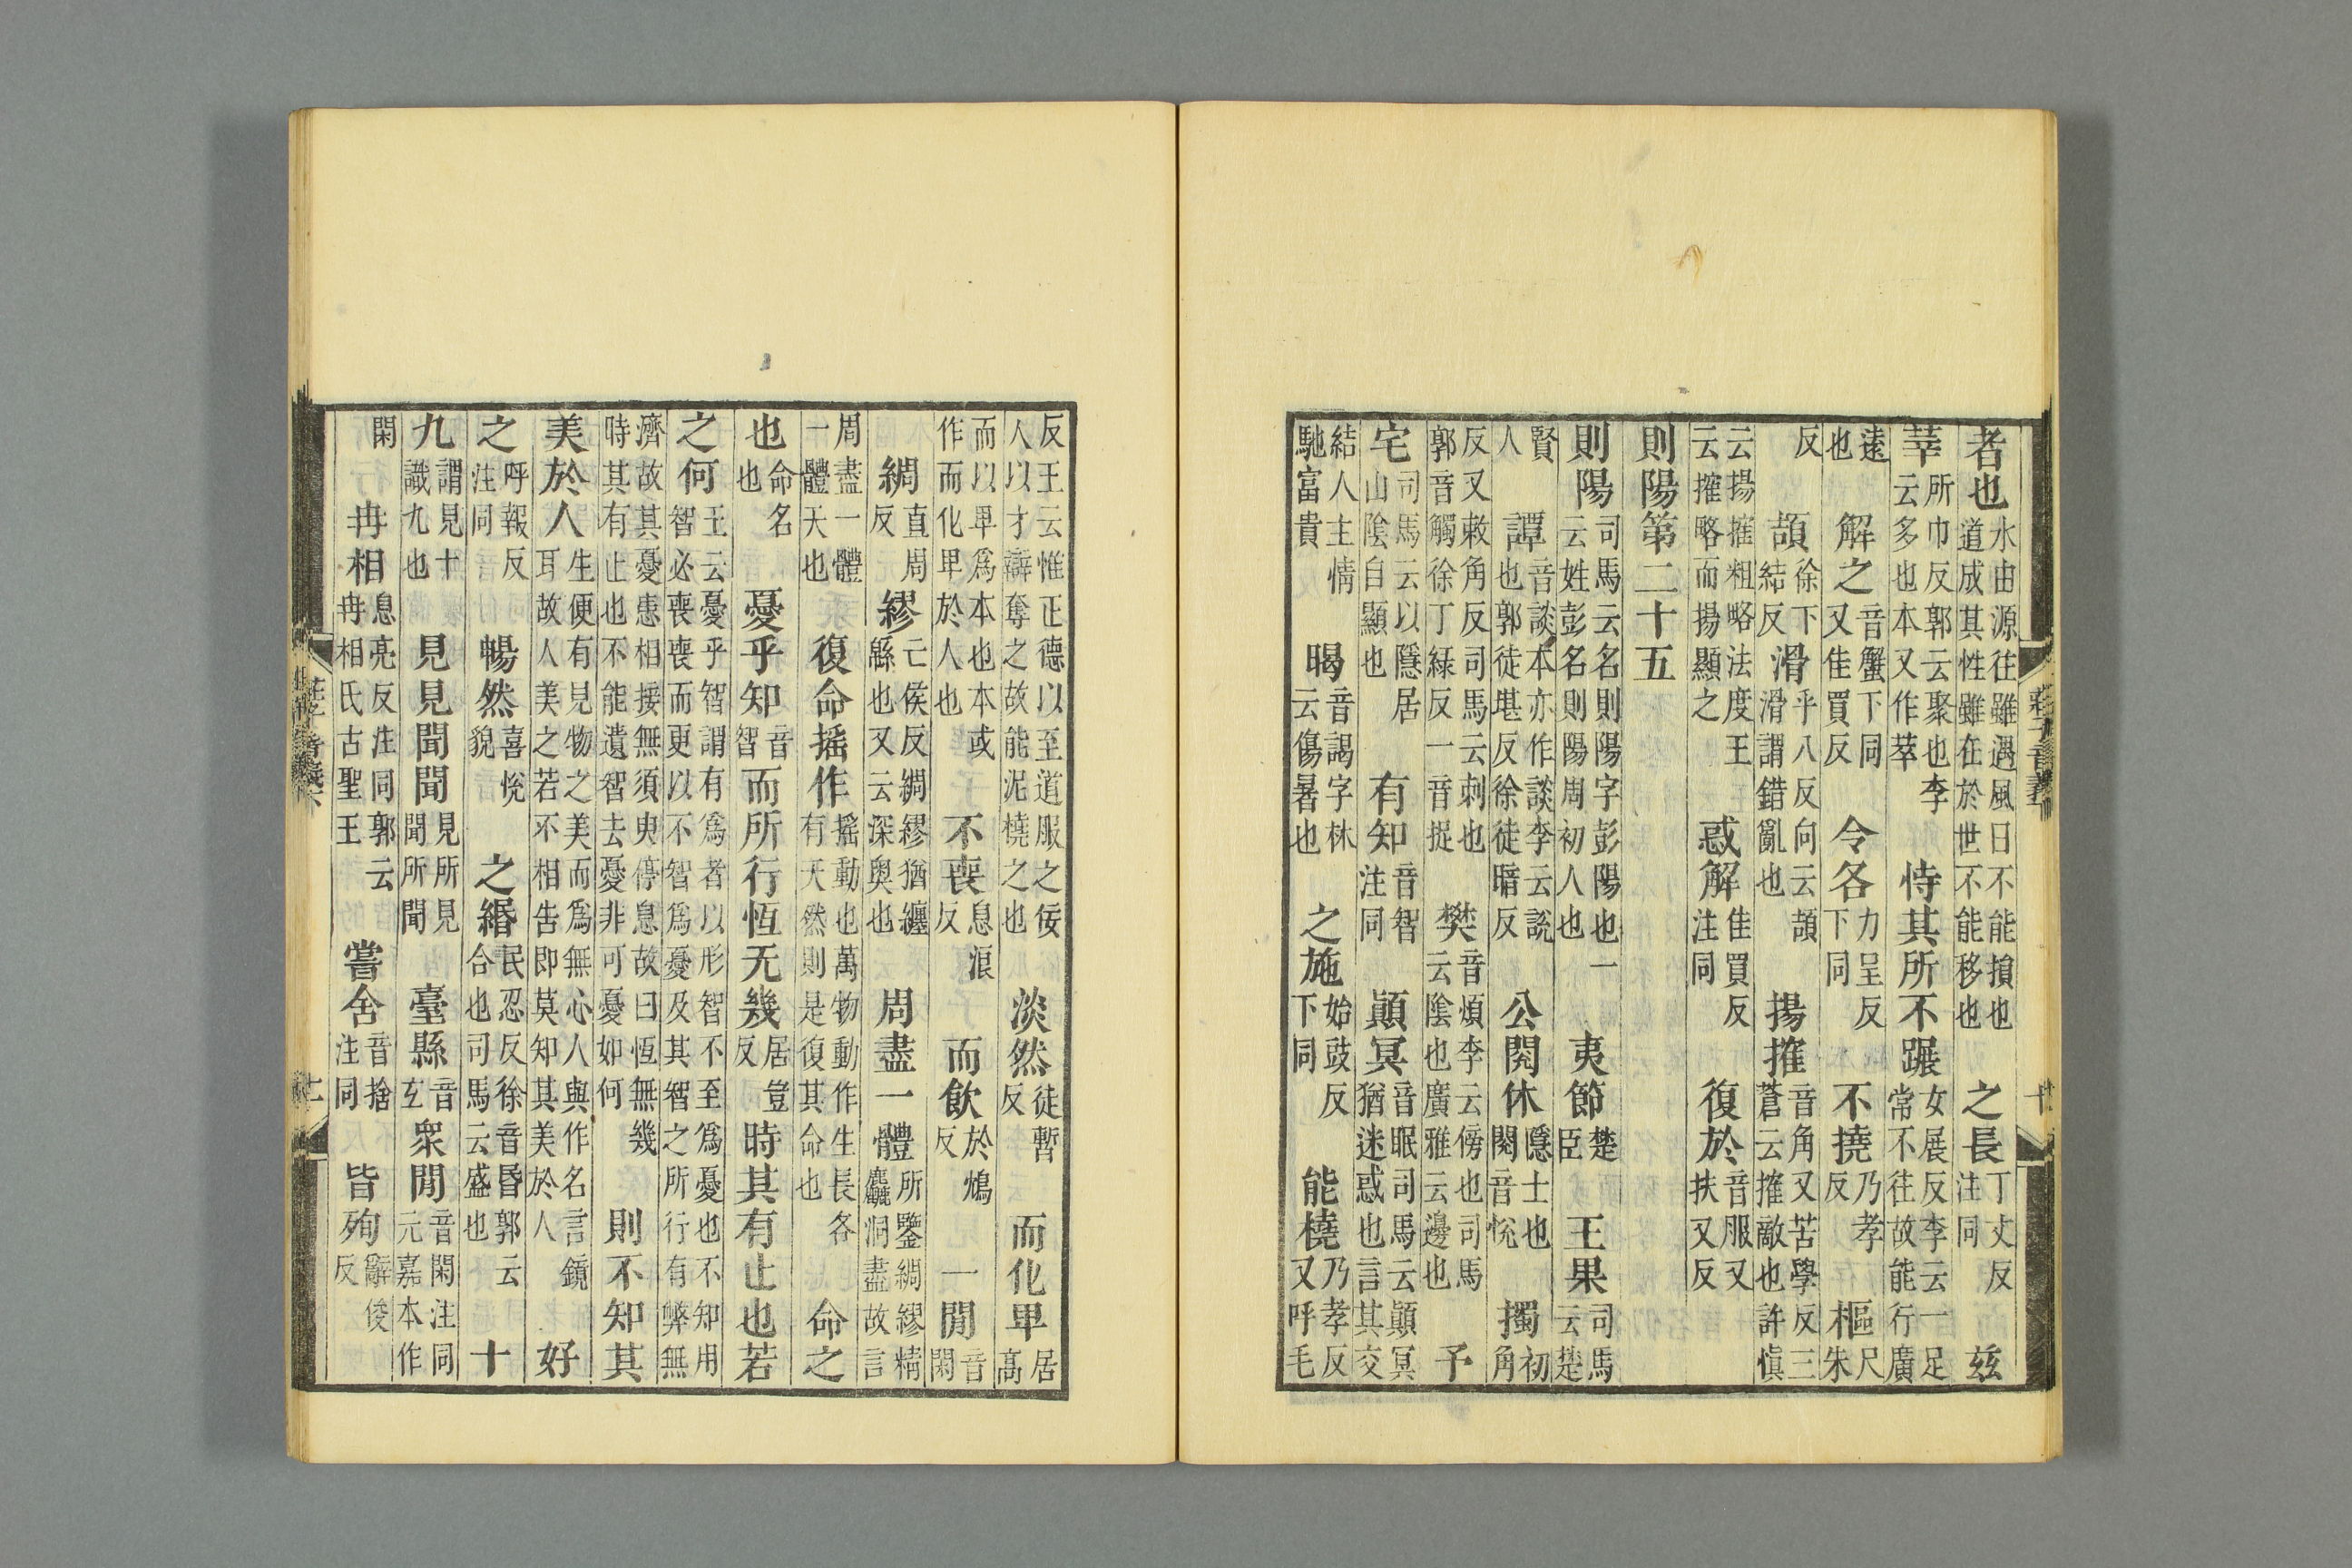 者也水由源往雖遇風日不能損也道成其性雖在於世不能移也之長丁丈反注同兹
莘所巾反郭云聚也李云多也本又作萃恃其所不蹍女展反李云一足常不往故能行廣
遠也解之音蟹下同又佳買反令各力呈反下同不撓乃孝反樞尺朱
反頡徐下結反滑乎八反向云頡滑謂錯亂也揚搉音角又苦學反三蒼云搉敵也許慎
云揚搉粗略法度王云搉略而揚顯之惑解佳買反注同復於音服又扶又反
則陽第二十五
則陽司馬云名則陽字彭陽也一云姓彭名則陽周初人也夷節楚臣王果司馬云楚
賢人譚音談本亦作談李云說也郭徒堪反徐徒暗反公閱休隱士也閱音悅擉初角
反又敕角反司馬云刺也郭音觸徐丁綠反一音捉樊音煩李云傍也司馬云陰也廣雅云邊也予
宅司馬云以隱居山陰自顯也有知音智注同顚冥音眠司馬云顚冥猶迷惑也言其交
結人主情馳富貴暍音謁字林云傷暑也之施始豉反下同能橈乃孝反又呼毛
莊子音義
反王云惟正德以至道服之佞人以才辯奪之故能泥橈之也淡然徒暫反而化卑居高
而以卑爲本也本或作而化卑於人也不喪息浪反而飲於鴆反一閒音閑
綢直周反繆亡侯反綢繆猶纏緜也又云深奧也周盡一體所鑒綢繆精麤洞盡故言
周盡一體一體天也復命搖作搖動也萬物動作生長各有天然則是復其命也命之
也命名也憂乎知音智而所行恆无幾居豈反時其有止也若
之何王云憂乎智謂有爲者以形智不至爲憂也不知用智必喪喪而更以不智爲憂及其智之所行有弊無
濟故其憂患相接無須臾停息故曰恆無幾時其有止也不能遺智去憂非可憂如何則不知其
美於人生便有見物之美而爲無心人與作名言鏡耳故人美之若不相告即莫知其美於人好
之呼報反注同暢然喜悅貌之緡民忍反徐音昬郭云合也司馬云盛也十
九謂見十識九也見見聞聞見所見聞所聞臺縣音玄衆閒音閑注同元嘉本作
閑冉相息亮反注同郭云冉相氏古聖王嘗舍音捨注同皆殉辭俊反